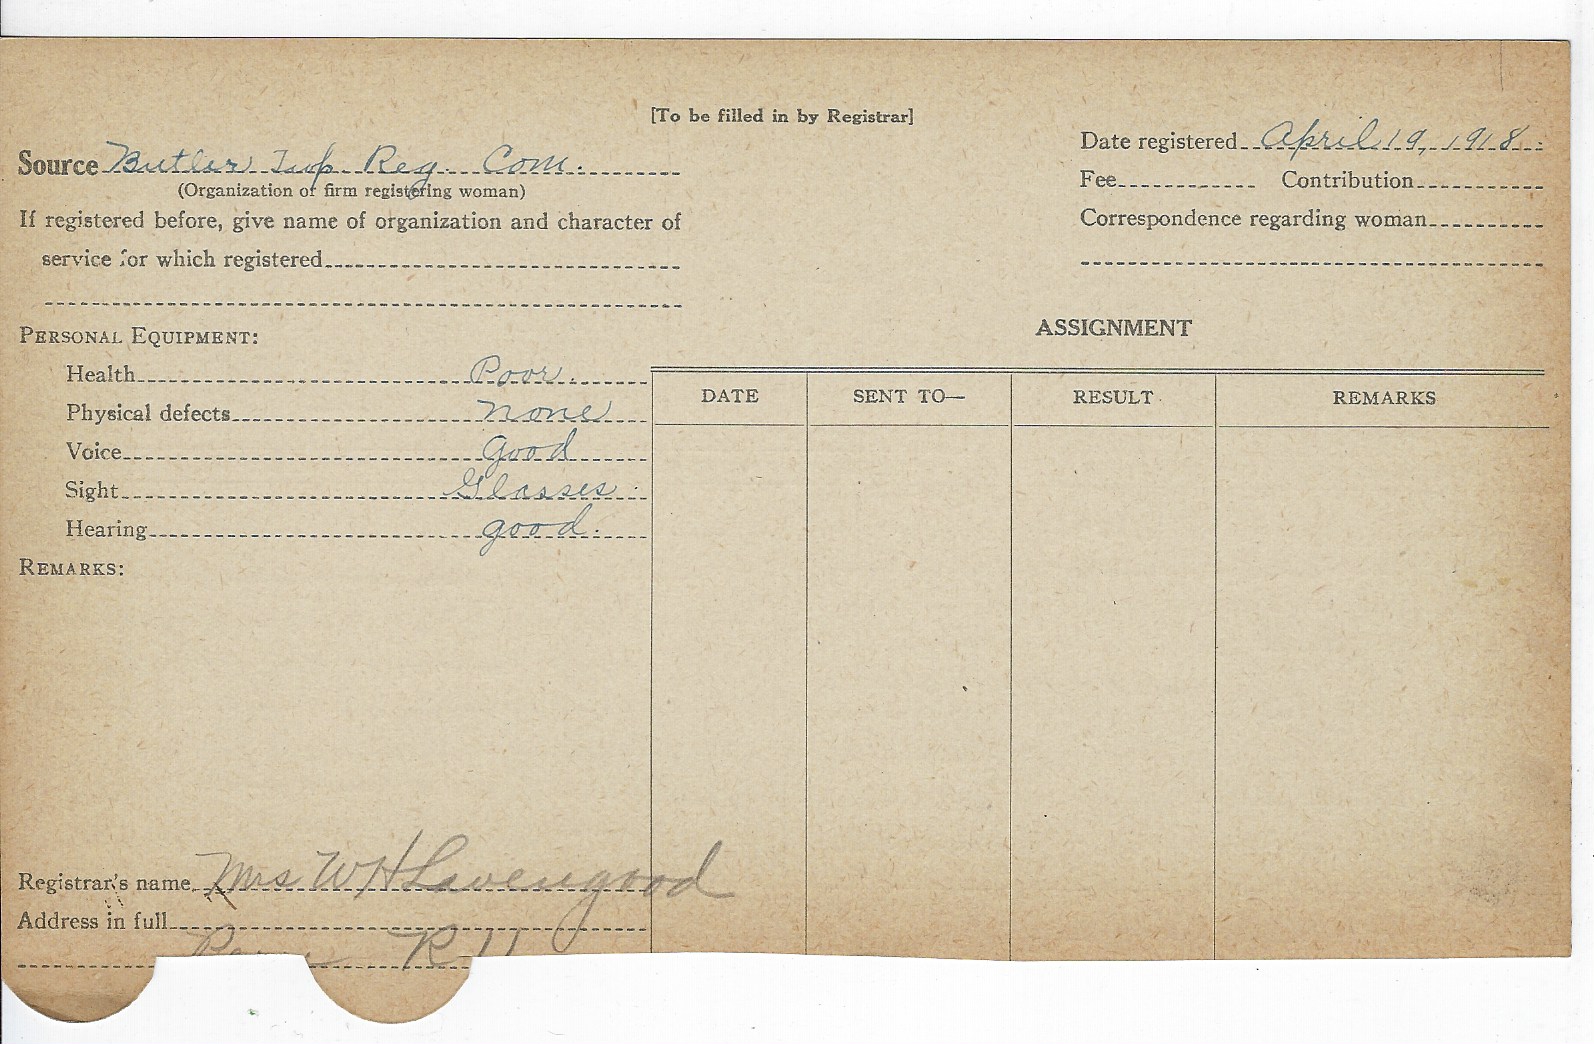 [To be filled in by Registrar]
Source Butler Twp Reg. Com.
(Organization or firm registering woman)
If registered before, give name of organization and character of
service for which registered
Date registered April 19, 1918
Fee Contribution
Correspondence regarding woman
PERSONAL EQUIPMENT:
Health Poor
Physical defects none
Voice good
Sight Glasses
Hearing good
REMARKS:
ASSIGNMENT
DATE SENT TO— RESULT REMARKS
Registrar's name Mrs W H Lavengood
Address in full
Peru R 11